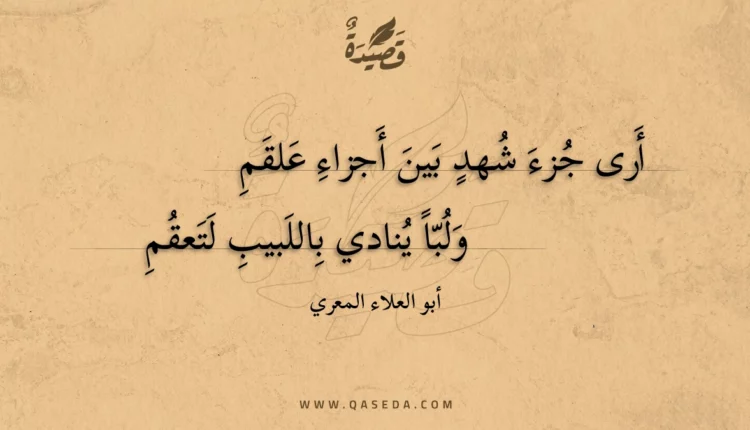 قَصِيْدَةٌ
أَرى جُزءَ شُهدٍ بَينَ أَجزاءِ عَلقَمِ
وَلُبّاً يُنادي بِاللَبيبِ لَتَعقُمِ
أبو العلاء المعري
WWW.QASEDA.COM